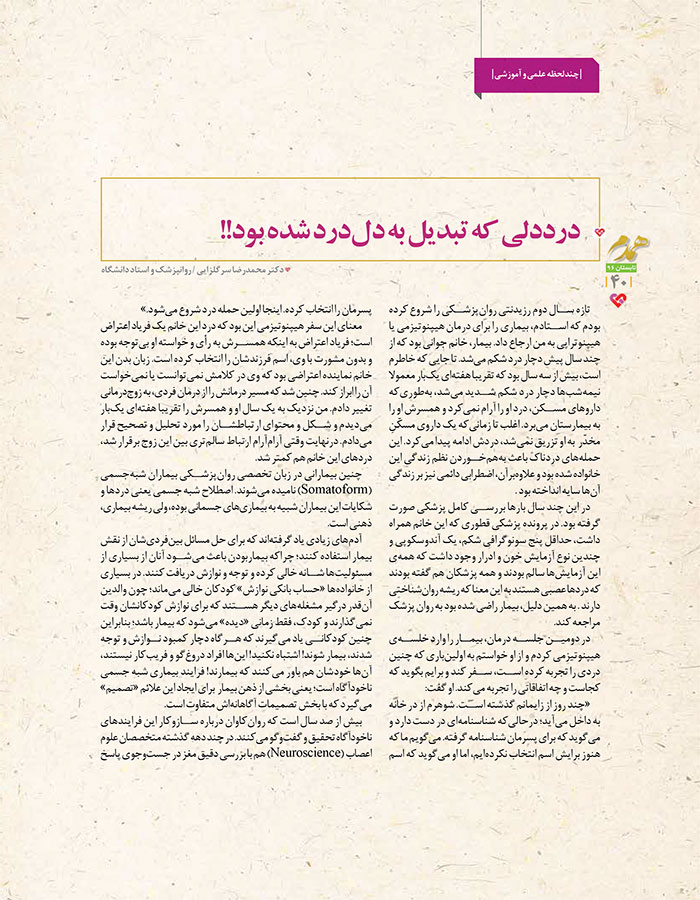 |چند لحظه علمی و آموزشی|
درددلی که تبدیل به دل‌درد شده بود!!
دکتر محمدرضا سرگلزایی / روانپزشک و استاد دانشگاه
همدم
تابستان ۹۶
|۴۰|
تازه سال دوم رزیدنتی روان‌پزشکی را شروع کرده
بودم که استادم، بیماری را برای درمان هیپنوتیزمی یا
هیپنوتراپی به من ارجاع داد. بیمار، خانم جوانی بود که از
چند سال پیش دچار درد شکم می‌شد. تا جایی که خاطرم
است، بیش از سه سال بود که تقریبا هفته‌ای یک‌بار معمولا
نیمه‌شب‌ها دچار درد شکم شدید می‌شد، به‌طوری که
داروهای مسکن، درد او را آرام نمی‌کرد و همسرش او را
به بیمارستان می‌برد. اغلب تا زمانی که یک داروی مسکّنِ
مخدّر به او تزریق نمی‌شد، دردش ادامه پیدا می‌کرد. این
حمله‌های دردناک باعث به‌هم‌خوردن نظم زندگی این
خانواده شده بود و علاوه‌بر آن، اضطرابی دائمی نیز بر زندگی
آن‌ها سایه انداخته بود.
در این چند سال بارها بررسی کامل پزشکی صورت
گرفته بود. در پرونده پزشکی قطوری که این خانم همراه
داشت، حداقل پنج سونوگرافی شکم، یک آندوسکوپی و
چندین نوع آزمایش خون و ادرار وجود داشت که همه‌ی
این آزمایش‌ها سالم بودند و همه پزشکان هم گفته بودند
که دردها عصبی هستند به این معنا که ریشه روان‌شناختی
دارند. به همین دلیل، بیمار راضی شده بود به روان پزشک
مراجعه کند.
در دومین جلسه درمان، بیمار را وارد خلسه‌ی
هیپنوتیزمی کردم و از او خواستم به اولین‌باری که چنین
دردی را تجربه کرده است، سفر کند و برایم بگوید که
کجاست و چه اتفاقاتی را تجربه می‌کند. او گفت:
«چند روز از زایمانم گذشته است. شوهرم از در خانه
به داخل می‌آید؛ درحالی که شناسنامه‌ای در دست دارد و
می‌گوید که برای پسرمان شناسنامه گرفته. می‌گویم ما که
هنوز برایش اسم انتخاب نکرده‌ایم، اما او می‌گوید که اسم
پسرمان را انتخاب کرده. اینجا اولین حمله درد شروع می‌شود.»
معنای این سفر هیپنوتیزمی این بود که درد این خانم یک فریاد اعتراض
است؛ فریاد اعتراض به اینکه همسرش به رأی و خواسته او بی‌توجه بوده
و بدون مشورت با وی، اسم فرزندشان را انتخاب کرده است. زبان بدن این
خانم نماینده اعتراضی بود که وی در کلامش نمی‌توانست یا نمی‌خواست
آن را ابراز کند. چنین شد که مسیر درمانش را از درمان فردی، به زوج‌درمانی
تغییر دادم. من نزدیک به یک سال او و همسرش را تقریبا هفته‌ای یک‌بار
می‌دیدم و شکل و محتوای ارتباطشان را مورد تحلیل و تصحیح قرار
می‌دادم. درنهایت وقتی آرام‌آرام ارتباط سالم‌تری بین این زوج برقرار شد،
دردهای این خانم هم کمتر شد.
چنین بیمارانی در زبان تخصصی روان‌پزشکی بیماران شبه‌جسمی
(Somatoform) نامیده می‌شوند. اصطلاح شبه جسمی یعنی دردها و
شکایات این بیماران شبیه به بیماری‌های جسمانی بوده، ولی ریشه بیماری،
ذهنی است.
آدم‌های زیادی یاد گرفته‌اند که برای حل مسائل بین‌فردی‌شان از نقش
بیمار استفاده کنند؛ چرا که بیمار بودن باعث می‌شود آنان از بسیاری از
مسئولیت‌ها شانه خالی کرده و توجه و نوازش دریافت کنند. در بسیاری
از خانواده‌ها «حساب بانکی نوازش» کودکان خالی می‌ماند؛ چون والدین
آن‌قدر درگیر مشغله‌های دیگر هستند که برای نوازش کودکانشان وقت
نمی‌گذارند و کودک، فقط زمانی «دیده» می‌شود که بیمار باشد؛ بنابراین
چنین کودکانی یاد می‌گیرند که هر گاه دچار کمبود نوازش و توجه
شدند، بیمار شوند! اشتباه نکنید! این‌ها افراد دروغ‌گو و فریب‌کار نیستند،
آن‌ها خودشان هم باور می کنند که بیمارند! فرایند بیماری شبه جسمی
ناخودآگاه است؛ یعنی بخشی از ذهن بیمار برای ایجاد این علائم «تصمیم»
می‌گیرد که با بخش تصمیمات آگاهانه‌اش متفاوت است.
بیش از صد سال است که روان‌کاوان درباره سازوکار این فرایندهای
ناخودآگاه تحقیق و گفت‌وگو می‌کنند. در چند دهه گذشته متخصصان علوم
اعصاب (Neuroscience) هم با بررسی دقیق مغز در جست‌وجوی پاسخ